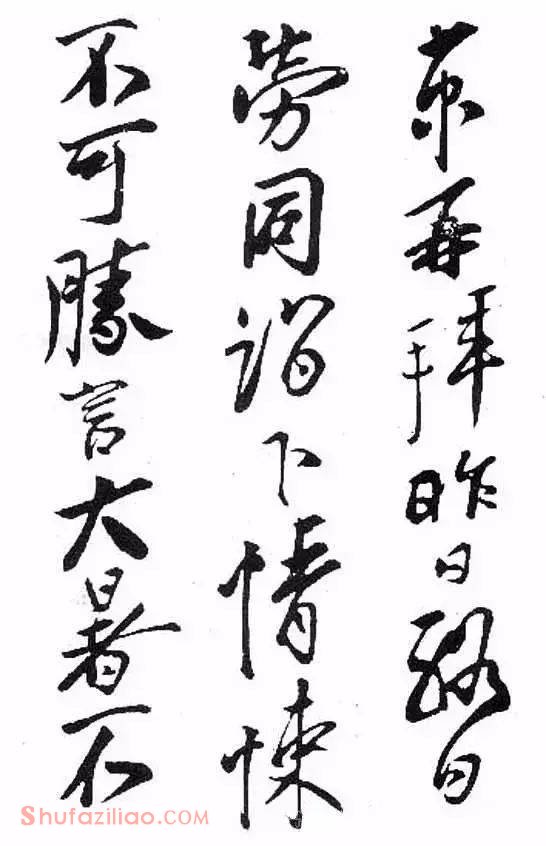 京再拜昨日終日
勞同詣下情悚
不可勝言大暑不
Shufaziliao.COM